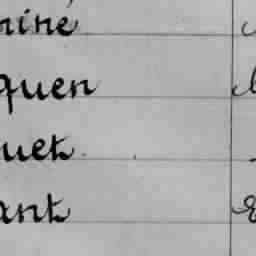 nine
quen
uet
ant